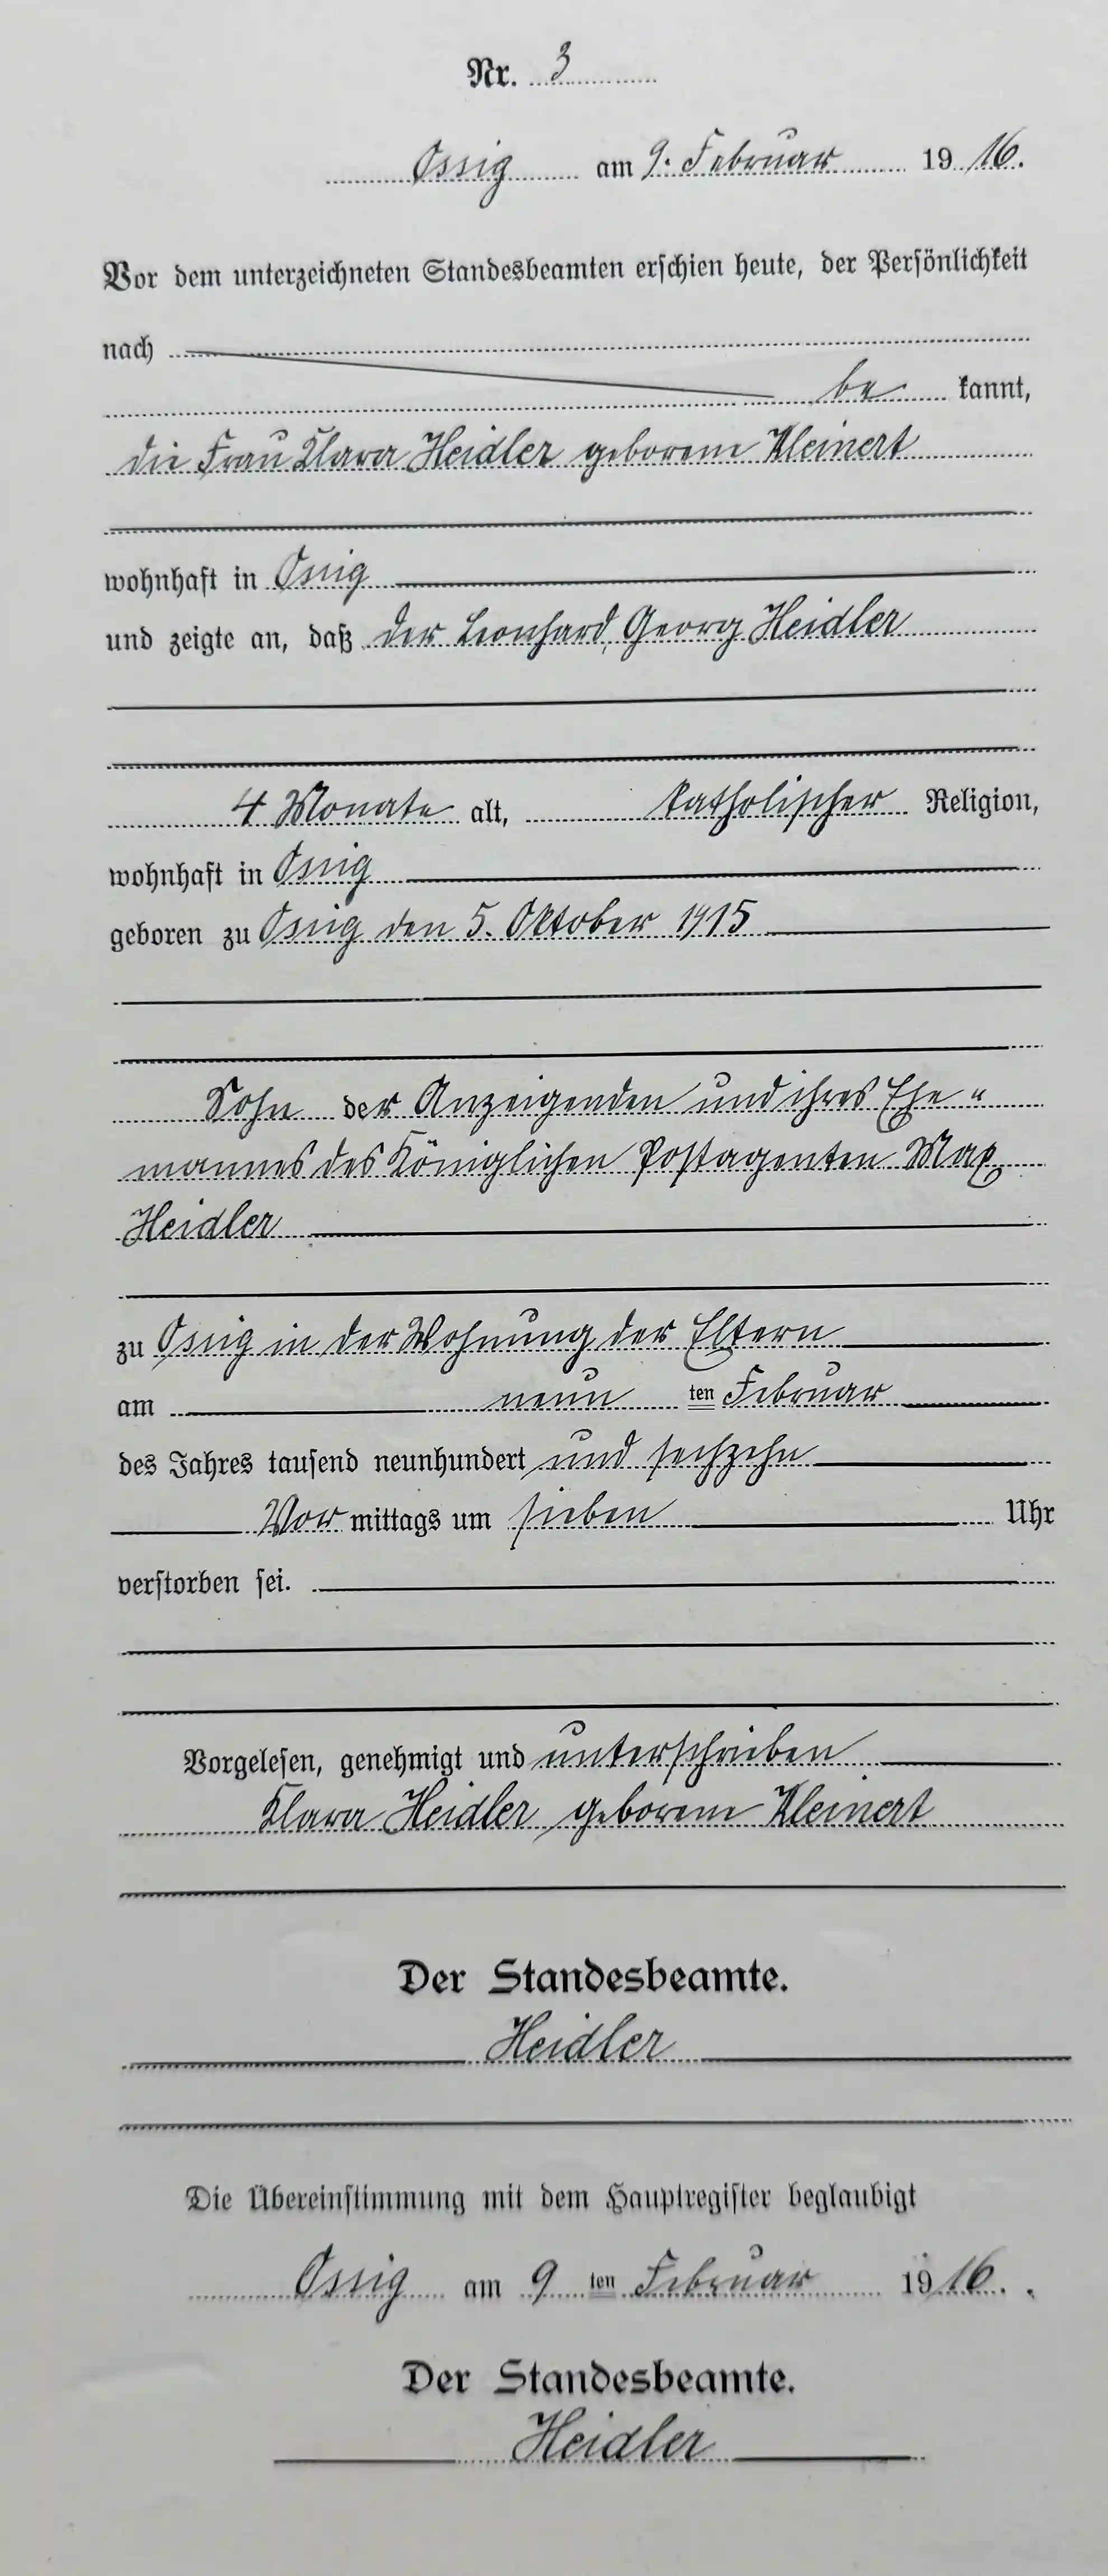 Nr. 3
Ossig am 9. Februar 1916.
Vor dem unterzeichneten Standesbeamten erschien heute, der Persönlichkeit
nach
be kannt,
die Frau Klara Heidler geborene Kleinert
wohnhaft in Ossig
und zeigte an, daß der Leonhard, Georg Heidler
4 Monate alt, katholischer Religion,
wohnhaft in Ossig
geboren zu Ossig den 5. Oktober 1915
Sohn der Anzeigenden und ihres Ehe "
mannes des Königlichen Postagenten Max
Heidler
zu Ossig in der Wohnung der Eltern
am neun ten Februar
des Jahres tausend neunhundert und sechzehn
Vor mittags um sieben Uhr
verstorben sei.
Vorgelesen, genehmigt und unterschrieben
Klara Heidler geborene Kleinert
Der Standesbeamte.
Heidler
Die Übereinstimmung mit dem Hauptregister beglaubigt
Ossig am 9 ten Februar 1916.
Der Standesbeamte.
Heidler